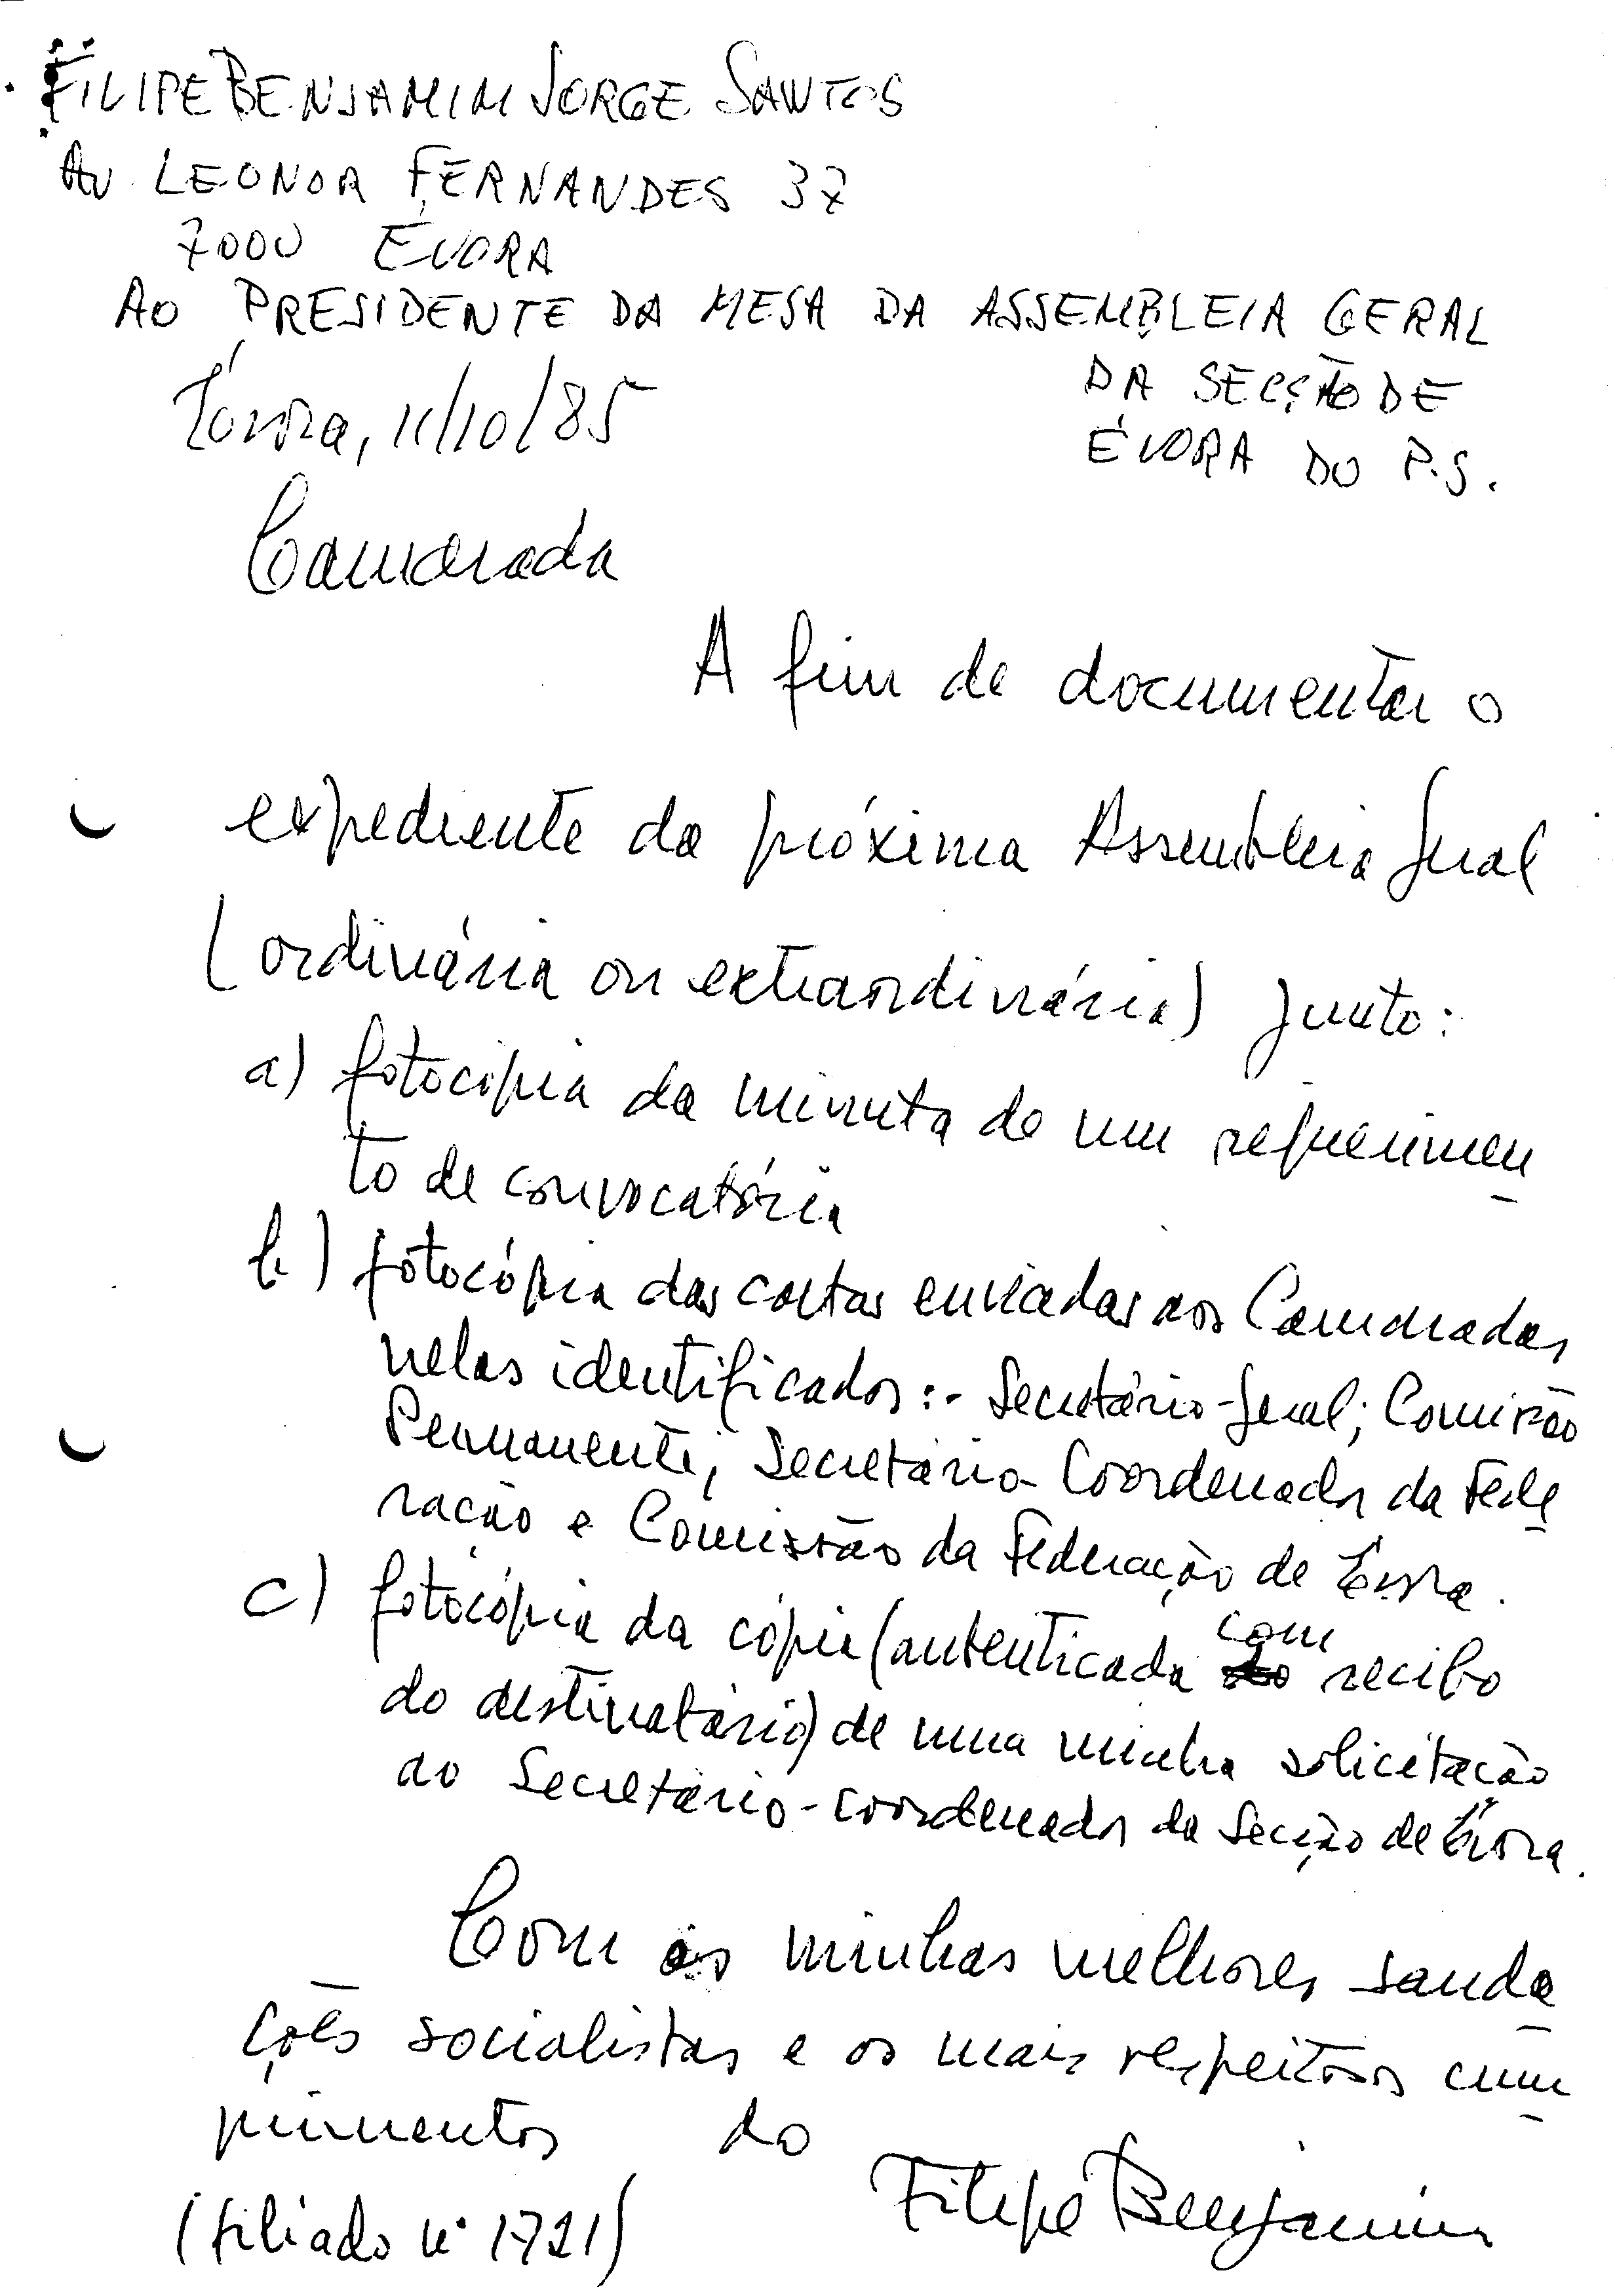 FILIPE BENJAMIM JORGE SANTOS
AV LEONOR FERNANDES 37
7000 ÉVORA
AO PRESIDENTE DA MESA DA ASSEMBLEIA GERAL
DA SECÇÃO DE
ÉVORA DO P.S.
Évora, 11/10/85
Camarada
A fim de documentar o
expediente da próxima Assembleia Geral
(ordinária ou extraordinária) junto:
a) fotocópia da minuta de um requerimen
to de convocatória
b) fotocópia das cartas enviadas aos Camaradas
nelas identificados:- Secretário-Geral; Comissão
Permanente; Secretário-Coordenador da Fede
ração e Comissão da Federação de Évora.
c) fotocópia da cópia (autenticada com recibo
do destinatário) de uma minha solicitação
ao Secretário-Coordenador da Secção de Évora.
Com as minhas melhores sauda
ções socialistas e os mais respeitosos cum
primentos do
Filipe Benjamim
(filiado nº 1721)